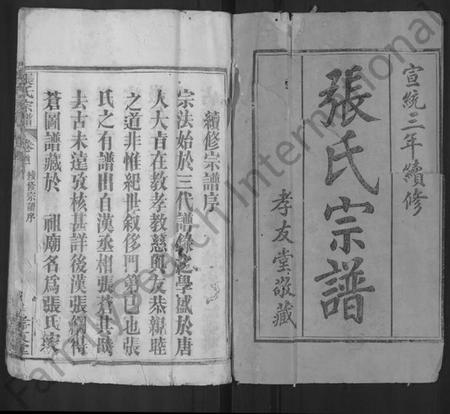 宣統三年續修
張氏宗譜
孝友堂敬藏
續修宗譜序
宗法始於三代譜錄之學盛於唐
人大旨在教孝教慈與友恭睦
之道非惟紀世叙侈門第已也張
氏之有譜出自漢丞相張蒼其時
去古未遠攷核甚詳後漢張綱得
蒼圖譜藏於 祖廟名爲張氏
張氏宗譜
續修譜序
FamilySearch International